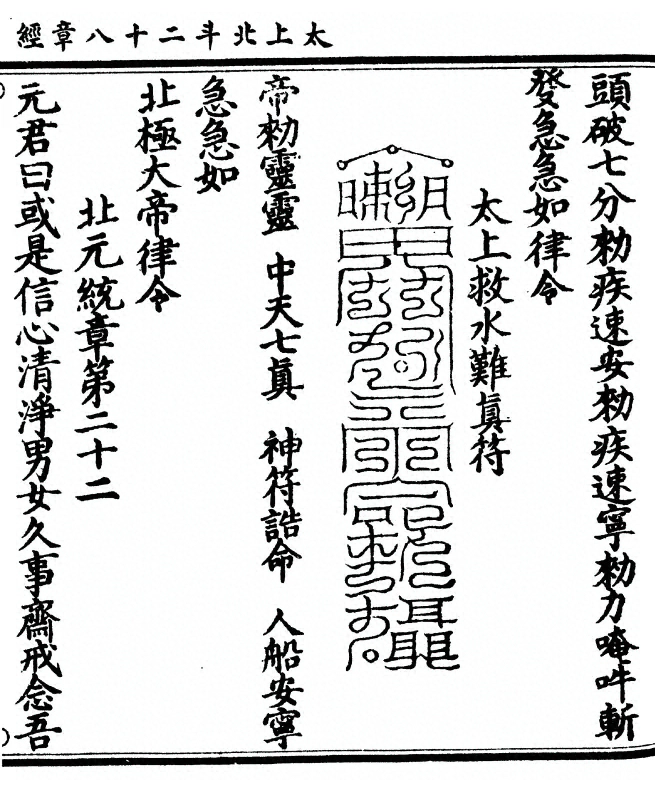 太上北斗二十八章經
頭破七分勑疾速安勑疾速寧勑力唵吽斬
發急急如律令
太上救水難眞符
帝勑靈靈 中天七眞 神符誥命 人船安寧
急急如
北極大帝律令
北元統章第二十二
元君曰或是信心清淨男女久事齋戒念吾